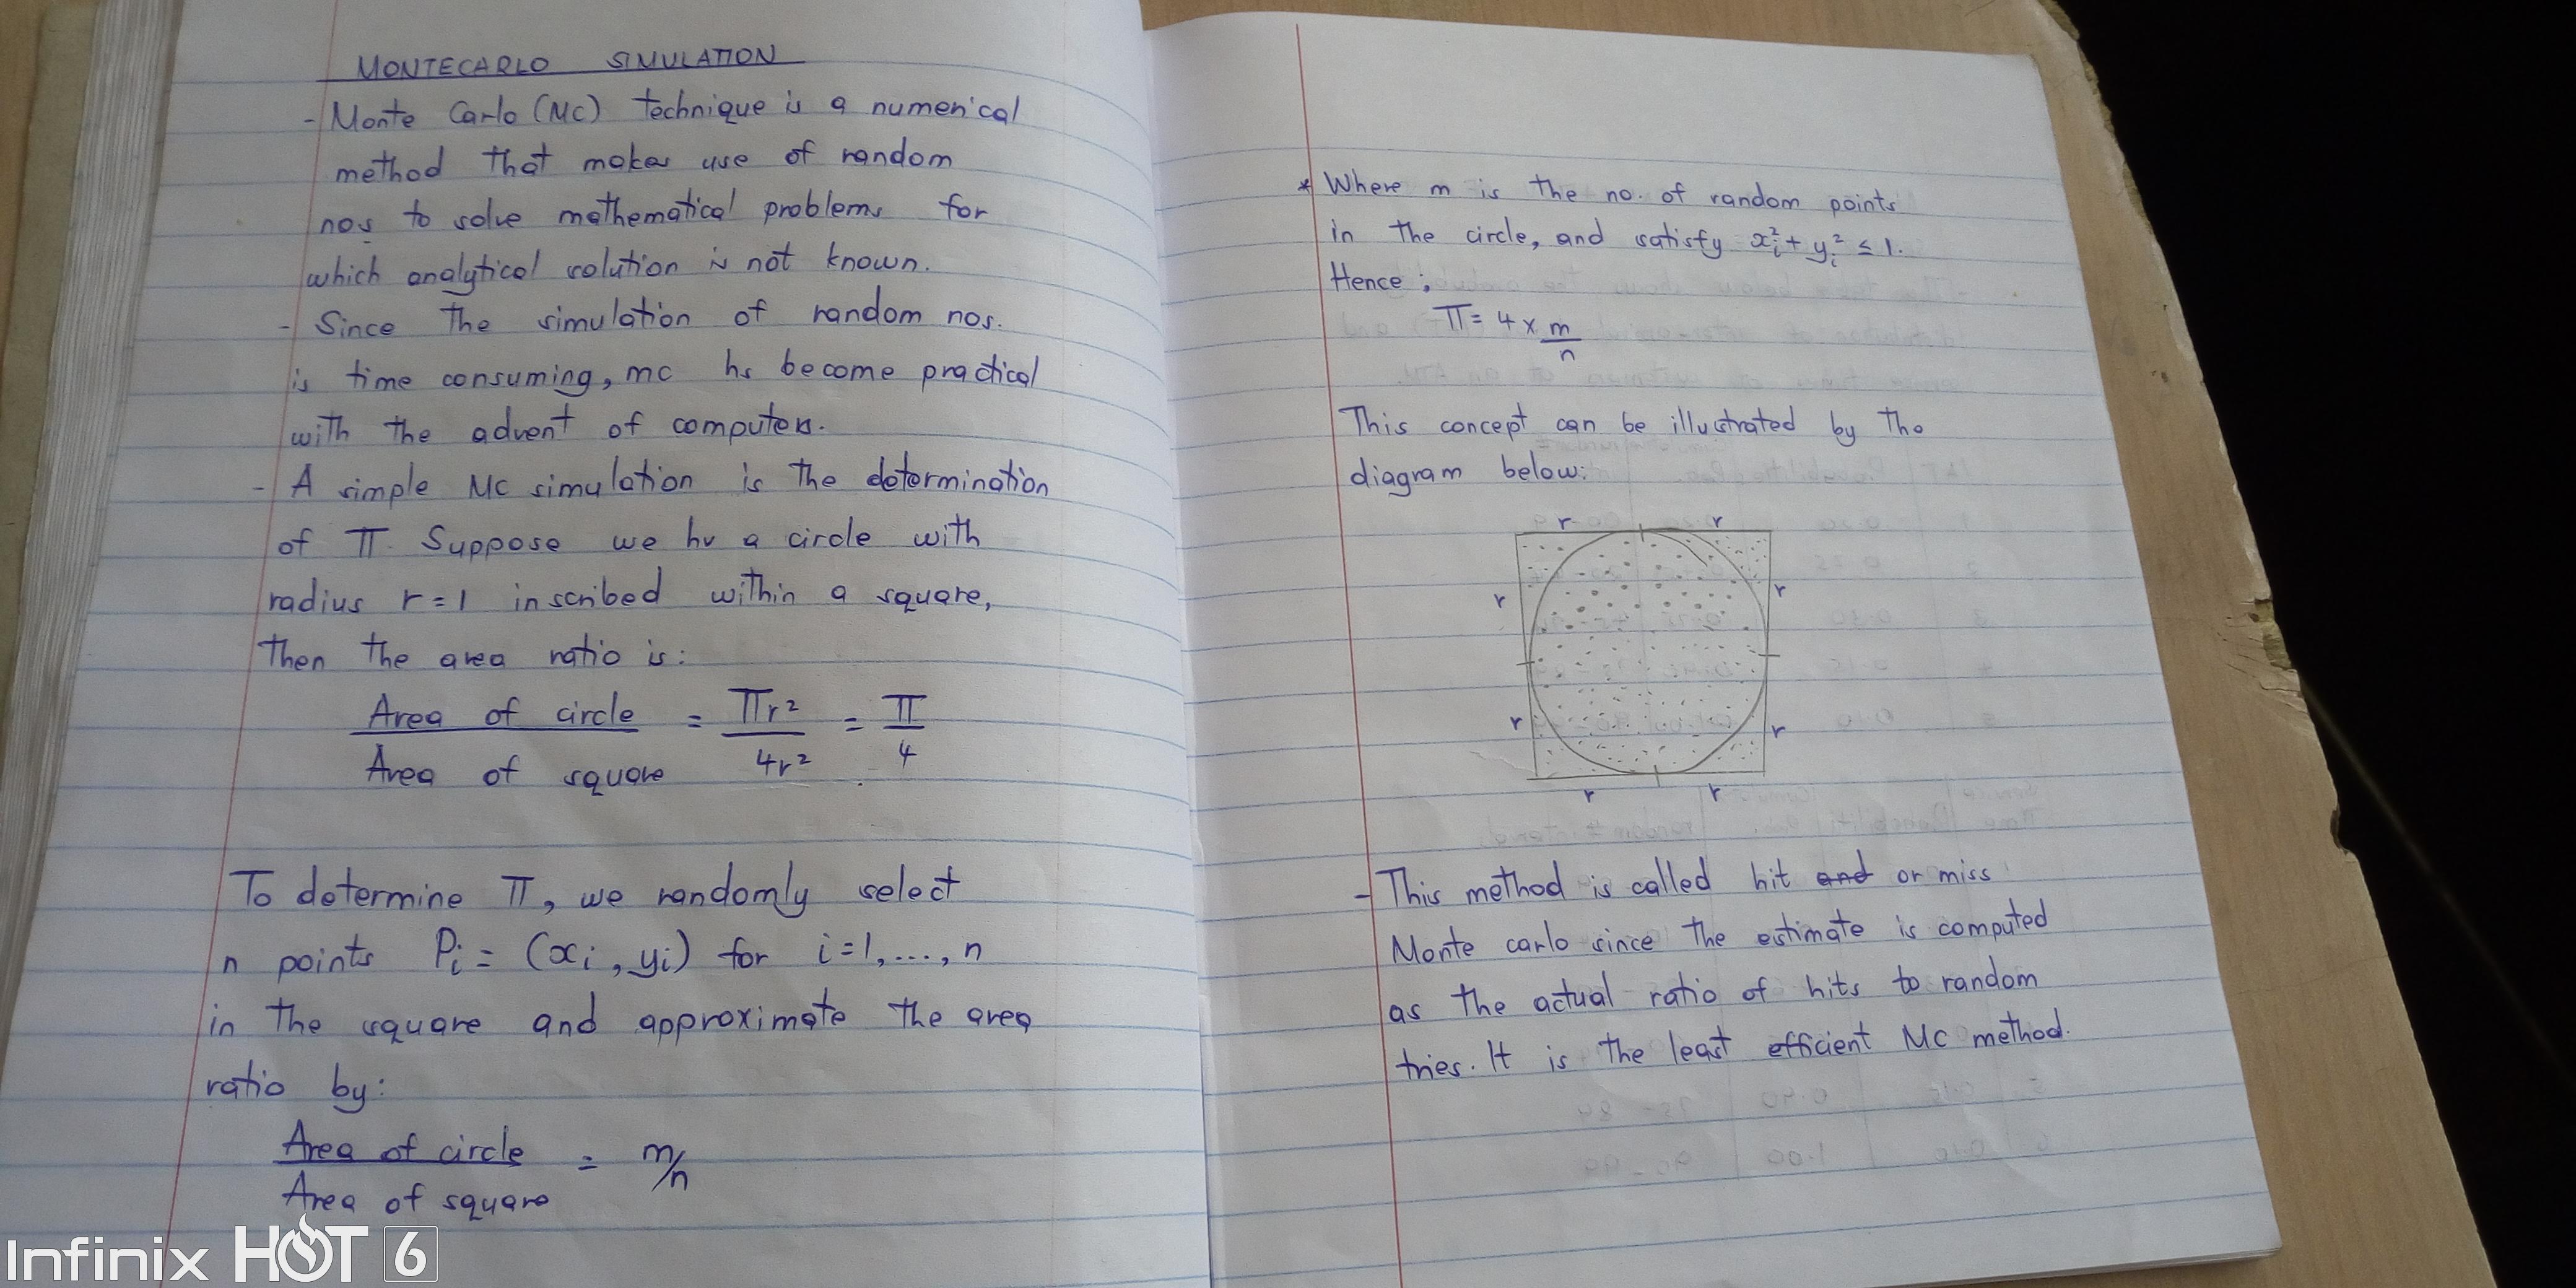 MONTECARLO SIMULATION
- Monte Carlo (MC) technique is a numerical
method that makes use of random
nos to solve mathematical problems for
which analytical solution is not known.
- Since the simulation of random nos.
is time consuming, mc hs become practical
with the advent of computers.
- A simple MC simulation is the determination
of π. Suppose we hv a circle with
radius r=1 inscribed within a square,
then the area ratio is:
Area of circle / Area of square = πr² / 4r² = π / 4
To determine π, we randomly select
n points Pi = (xi, yi) for i=1,..., n
in the square and approximate the area
ratio by:
Area of circle / Area of square = m/n
Infinix HOT 6
* Where m is the no. of random points
in the circle, and satisfy xi² + yi² ≤ 1.
Hence;
π = 4 x m/n
This concept can be illustrated by the
diagram below:
r r
r r
r r
r r
- This method is called hit and or miss
Monte carlo since the estimate is computed
as the actual ratio of hits to random
tries. It is the least efficient MC method.